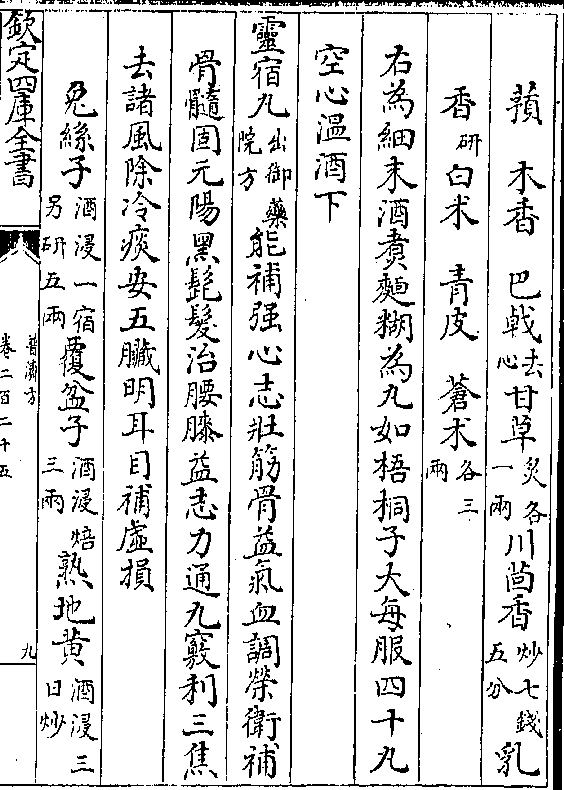 蘋　木香　巴戟去心　甘草炙各一兩　川茴香炒七錢五分　乳
香研　白术　青皮　蒼术各三兩
右為細末酒煑麵糊為丸如梧桐子大每服四十丸
空心溫酒下
靈宿丸出御藥院方　能補强心志壯筋骨益氣血調榮衛補
骨髓固元陽黑髭髮治腰膝益志力通九竅利三焦
去諸風除冷痰安五臟明耳目補虛損
兔絲子酒浸一宿另研五兩　覆盆子酒浸焙三兩　熟地黄酒浸三日炒
欽定四庫全書
普濟方
卷二百二十五
九